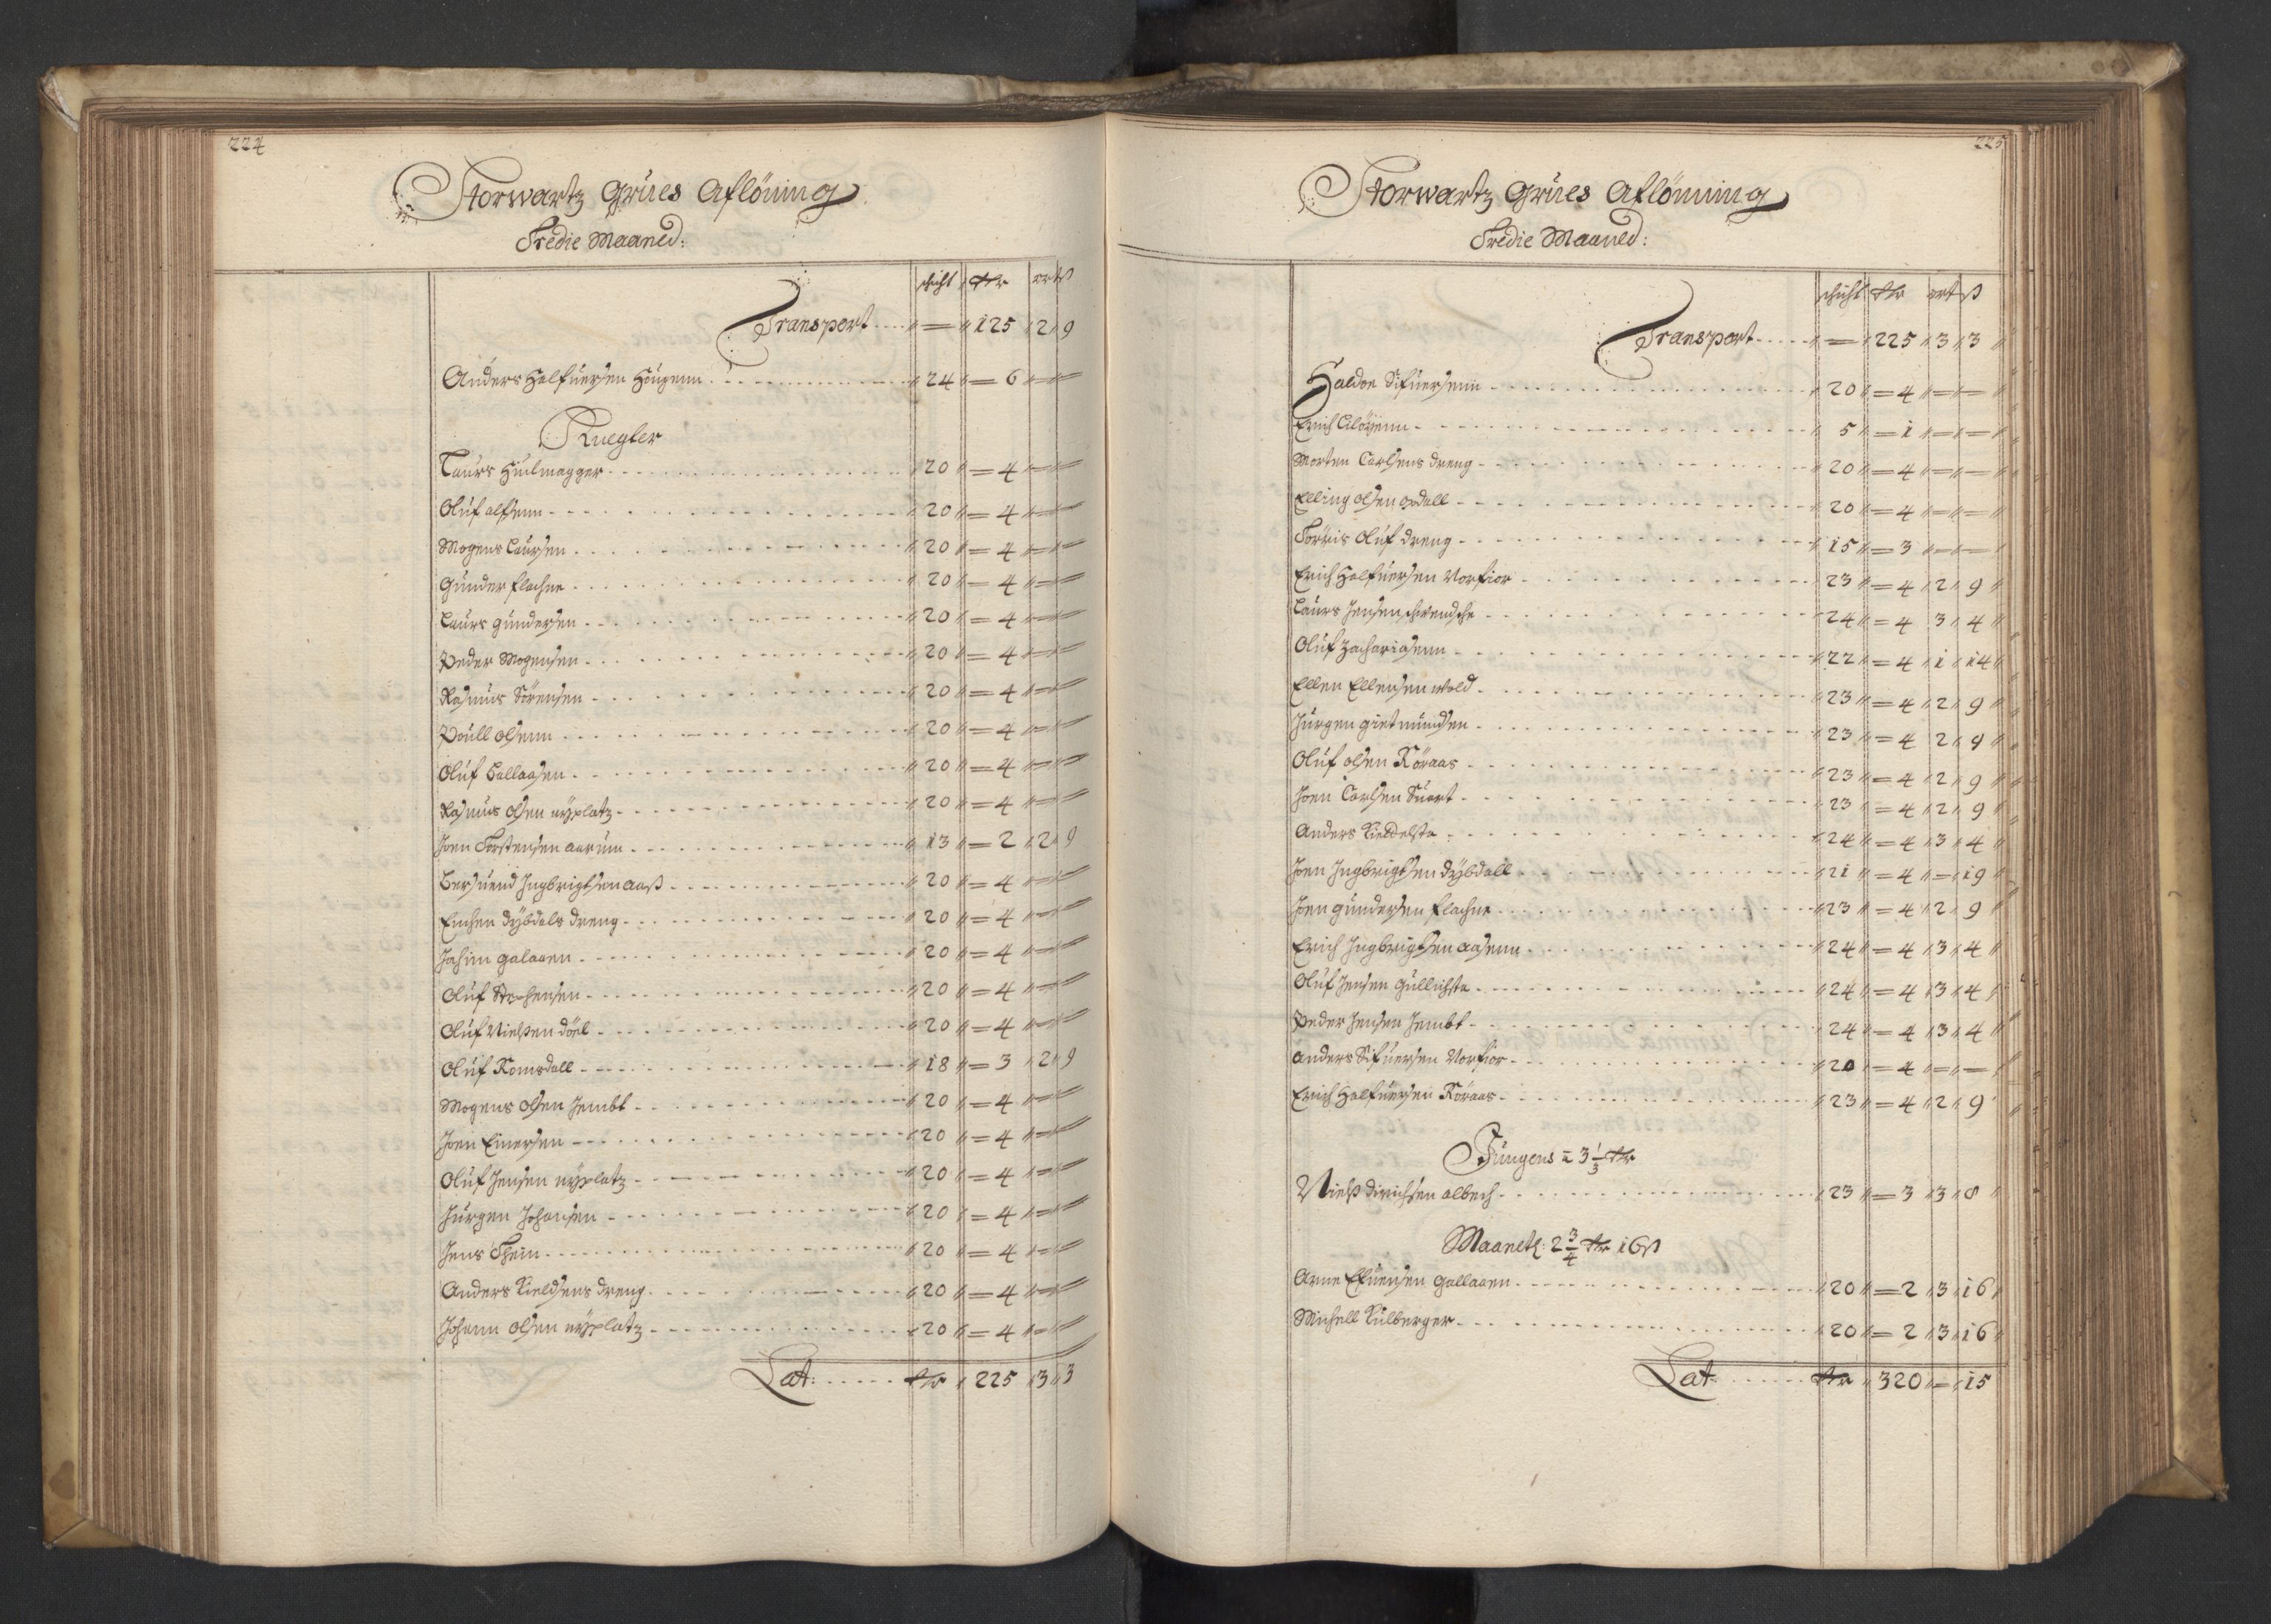 224
Storwartz Grues Aflöning
Tredie Maaned:
schicht Rdr ort ß
Transport — 125 2 9
Anders Halfuersen Hougenn 24 — 6 — —
Knegter
Laurs Hiulmagger 20 — 4 — —
Oluf alfsenn 20 — 4 — —
Mogens Laursen 20 — 4 — —
Gunder flachne 20 — 4 — —
Laurs gundersen 20 — 4 — —
Peder Mogensen 20 — 4 — —
Rasmus Sörensen 20 — 4 — —
Poull olsenn 20 — 4 — —
Oluf Callassen 20 — 4 — —
Rasmus olsen nÿplatz 20 — 4 — —
Joen Torstensen aarum 13 — 2 2 9
Bersuend Ingbrigtsen aaß 20 — 4 — —
Einchen dÿbdals dreng 20 — 4 — —
Jochim galaaen 20 — 4 — —
Oluf Stephensen 20 — 4 — —
Oluf Nielsen döel 20 — 4 — —
Oluf Romsdall 18 — 3 2 9
Mogens olsen Jembt 20 — 4 — —
Joen Einersen 20 — 4 — —
Oluf Jensen nÿplatz 20 — 4 — —
Jürgen Johansen 20 — 4 — —
Jens Thein 20 — 4 — —
Anders Kieldsens dreng 20 — 4 — —
Johann olsen nÿplatz 20 — 4 — —
Lat: Rdr 225 3 3
225
Storwartz Grues Aflönning
Tredie Maaned:
schicht Rdr ort ß
Transport — 225 3 3
Haldoe Sifuersenn 20 — 4 — —
Erich 5 — 1 — —
Morten Carlsens dreng 20 — 4 — —
Elling olsen ordall 20 — 4 — —
Törris Oluf dreng 15 — 3 — —
Erich Halfuersen Vorfior 23 — 4 2 9
Laurs Jensen schwendsche 24 — 4 3 4
Oluf Zachariasenn 22 — 4 1 14
Ellen Ellensen wold 23 — 4 2 9
Jürgen gietmundsen 23 — 4 2 9
Oluf olsen Röraas 23 — 4 2 9
Joen Carlsen Suart 23 — 4 2 9
Anders 24 — 4 3 4
Joen Ingbrigtsen dÿbdall 21 — 4 — 19
Joen gundersen flachne 23 — 4 2 9
Erich Ingbrigtsen aasenn 24 — 4 3 4
Oluf Jensen gullichsta 24 — 4 3 4
Peder Jensen Jembt 24 — 4 3 4
Anders Sifuersen Vorfior 20 — 4 — —
Erich Halfuersen Röraas 23 — 4 2 9
Jungens a 3 1/3 Rdr
Nielß dirichsen albech 23 — 3 3 8
Maanetl: 2 3/4 Rdr 16 ß
Arne Efuensen gallaaen 20 — 2 3 16
Michell Külberger 20 — 2 3 16
Lat Rdr 320 — 15